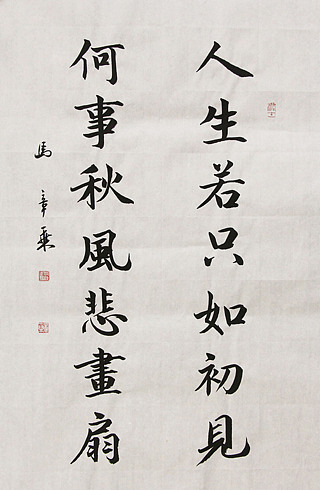 人生若只如初見
何事秋風悲畫扇
馬章乗